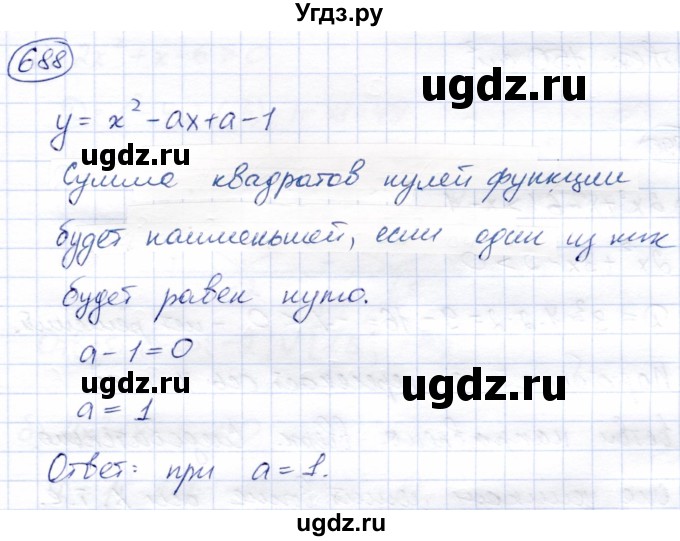 Угдз.ру
688
ugdz.ru
y = x² - ax + a - 1
ugdz.ru
Сумма квадратов нулей функции
ugdz.ru
будет наименьшей, если один из них
будет равен нулю.
a - 1 = 0
ugdz.ru
ugdz.ru
a = 1
Ответ: при a = 1.
ugdz.ru
ugdz.ru